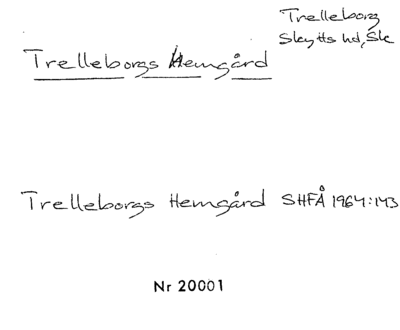 Trelleborg
Skytts hd, Sk
Trelleborgs Hemgård
Trelleborgs Hemgård SHFÅ 1964:143
Nr 20001